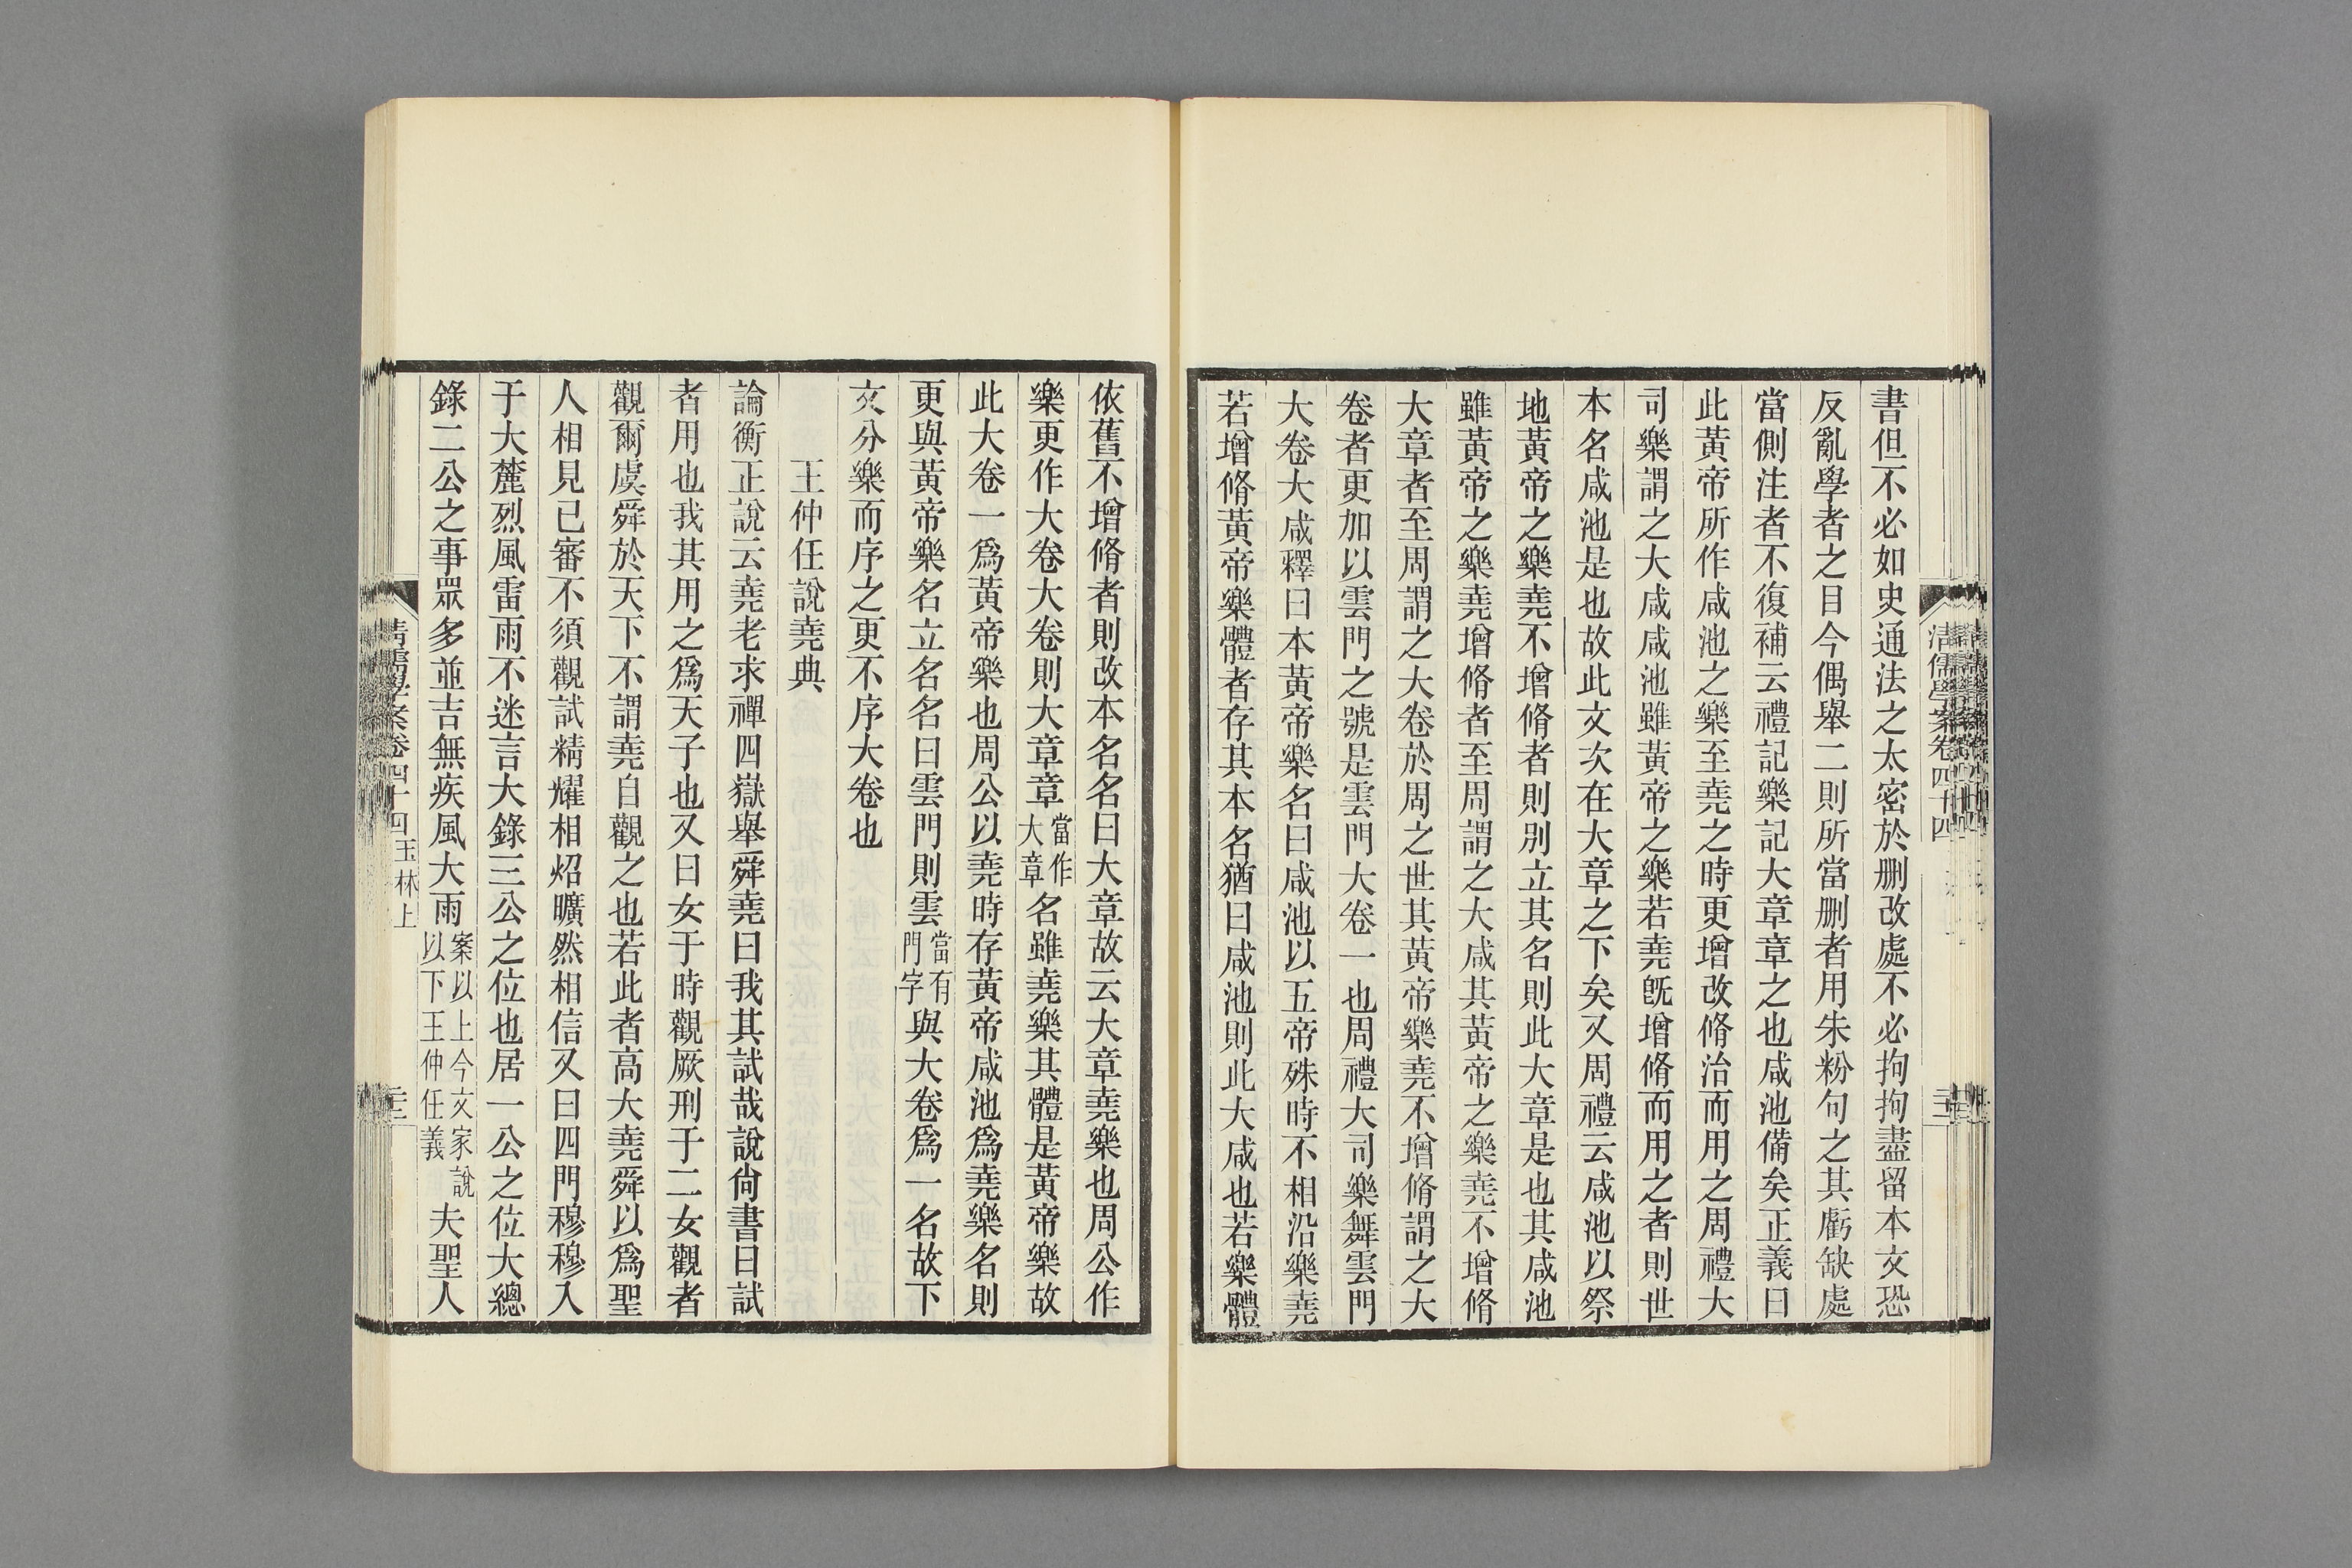 清儒學案卷四十四
書但不必如史通法之太密於刪改處不必拘拘盡留本文恐
反亂學者之目今偶舉二則所當刪者用朱粉句之其虧缺處
當側注者不復補云禮記樂記大章章之也咸池備矣正義曰
此黃帝所作咸池之樂至堯之時更增改脩治而用之周禮大
司樂謂之大咸咸池雖黃帝之樂若堯旣增脩而用之者則世
本名咸池是也故此文次在大章之下矣又周禮云咸池以祭
地黃帝之樂堯不增脩者則別立其名則此大章是也其咸池
雖黃帝之樂堯增脩者至周謂之大咸其黃帝之樂堯不增脩
大章者至周謂之大卷於周之世其黃帝樂堯不增脩謂之大
卷者更加以雲門之號是雲門大卷一也周禮大司樂舞雲門
大卷大咸釋曰本黃帝樂名曰咸池以五帝殊時不相沿樂堯
若增脩黃帝樂體者存其本名猶曰咸池則此大咸也若樂體
依舊不增脩者則改本名名曰大章故云大章堯樂也周公作
樂更作大卷大卷則大章章當作大章名雖堯樂其體是黃帝樂故
此大卷一爲黃帝樂也周公以堯時存黃帝咸池爲堯樂名則
更與黃帝樂名立名名曰雲門則雲當有門字與大卷爲一名故下
文分樂而序之更不序大卷也
王仲任說堯典
論衡正說云堯老求禪四嶽舉舜堯曰我其試哉說尙書曰試
者用也我其用之爲天子也又曰女于時觀厥刑于二女觀者
觀爾虞舜於天下不謂堯自觀之也若此者高大堯舜以爲聖
人相見已審不須觀試精耀相炤曠然相信又曰四門穆穆入
于大麓烈風雷雨不迷言大錄三公之位也居一公之位大總
錄二公之事眾多並吉無疾風大雨案以上今文家說以下王仲任義夫聖人
清儒學案卷四十四 玉林上